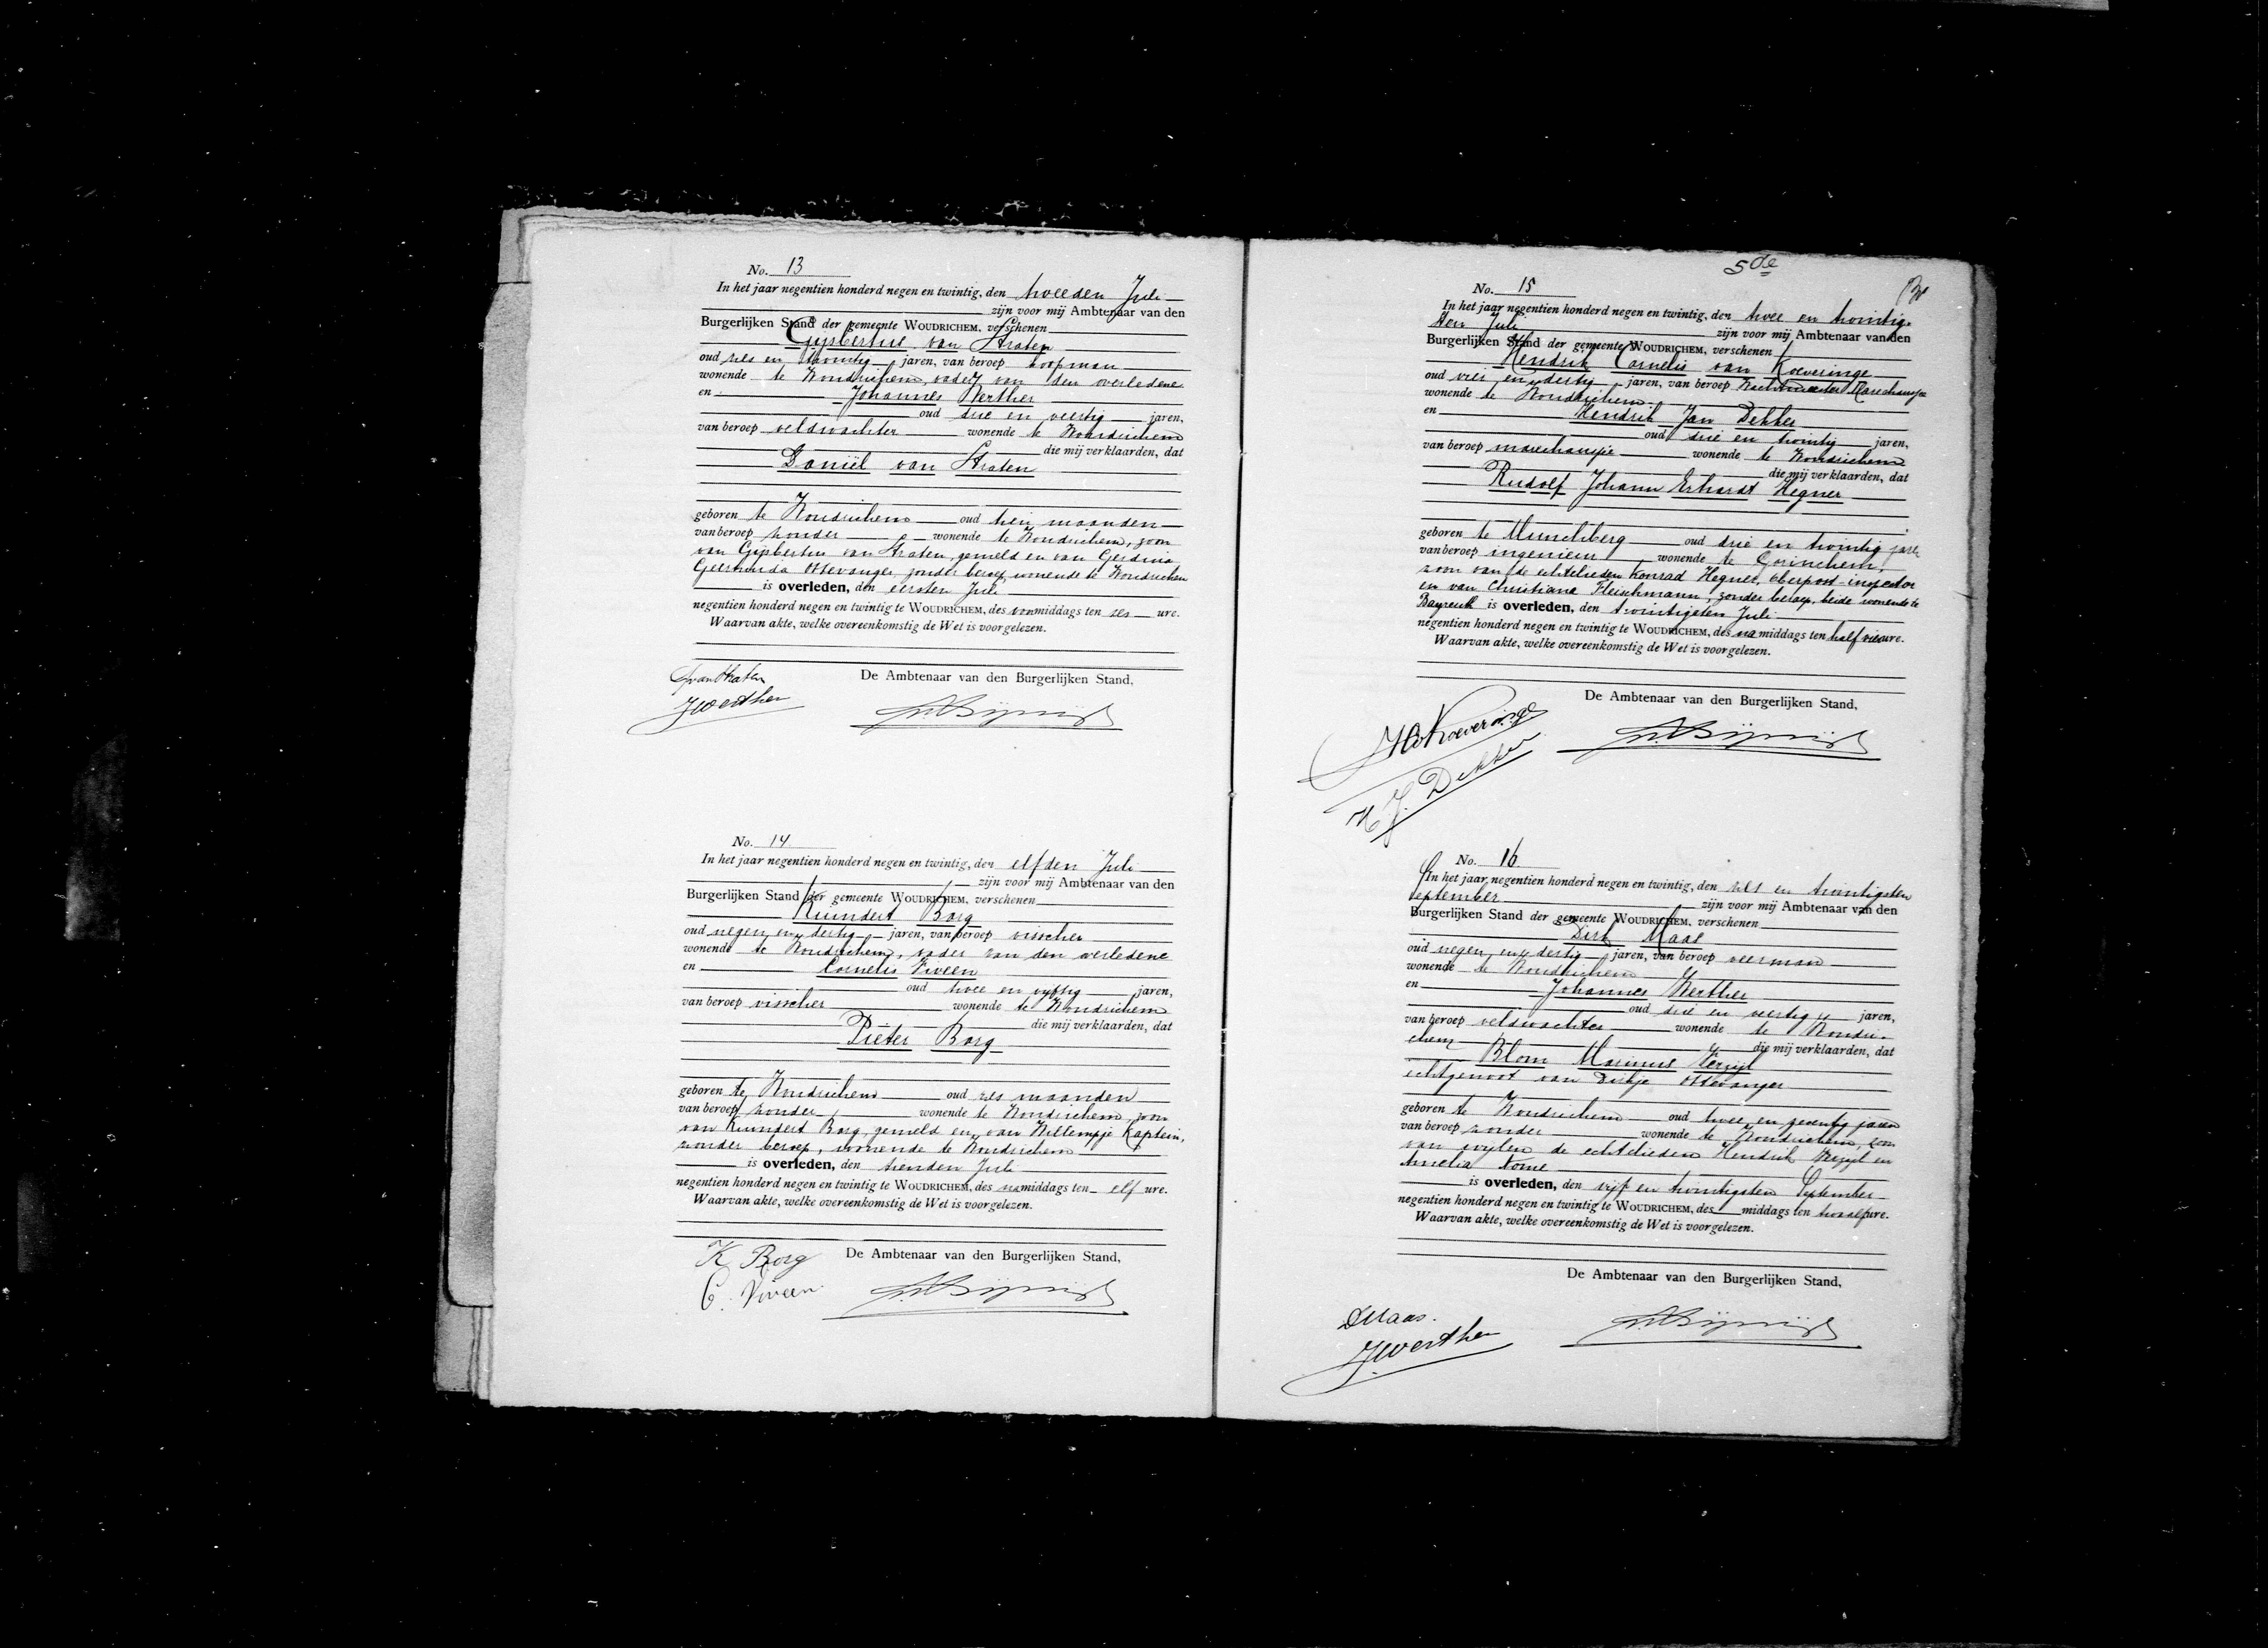 No. 13
In het jaar negentien honderd negen en twintig, den tweeden Juli
zijn voor mij Ambtenaar van den
Burgerlijken Stand der gemeente WOUDRICHEM, verschenen
Gijsbertus van Straten
oud zes en twintig jaren, van beroep koopman
wonende te Woudrichem, vader van den overledene
en Johannes Werther
oud drie en veertig jaren,
van beroep veldwachter wonende te Woudrichem
die mij verklaarden, dat
Daniël van Straten
geboren te Woudrichem oud tien maanden
van beroep zonder wonende te Woudrichem, zoon
van Gijsbertus van Straten, gemeld en van Gerdina
Geertruida Ottevanger, zonder beroep, wonende te Woudrichem
is overleden, den eersten Juli
negentien honderd negen en twintig te WOUDRICHEM, des voormiddags ten zes ure.
Waarvan akte, welke overeenkomstig de Wet is voorgelezen.
De Ambtenaar van den Burgerlijken Stand,
G van Straten
J Werther
No. 14
In het jaar negentien honderd negen en twintig, den elfden Juli
zijn voor mij Ambtenaar van den
Burgerlijken Stand der gemeente WOUDRICHEM, verschenen
Kuindert Borg
oud negen en dertig jaren, van beroep visscher
wonende te Woudrichem, vader van den overledene
en Cornelis Viveen
oud twee en vijftig jaren,
van beroep visscher wonende te Woudrichem
die mij verklaarden, dat
Pieter Borg
geboren te Woudrichem oud zes maanden
van beroep zonder wonende te Woudrichem, zoon
van Kuindert Borg, gemeld en van Willempje Kaptein,
zonder beroep, wonende te Woudrichem
is overleden, den tienden Juli
negentien honderd negen en twintig te WOUDRICHEM, des namiddags ten elf ure.
Waarvan akte, welke overeenkomstig de Wet is voorgelezen.
De Ambtenaar van den Burgerlijken Stand,
K Borg
C. Viveen
5de
No. 15
In het jaar negentien honderd negen en twintig, den twee en twintig-
sten Juli zijn voor mij Ambtenaar van den
Burgerlijken Stand der gemeente WOUDRICHEM, verschenen
Hendrik Cornelis van Koeveringe
oud vier en dertig jaren, van beroep Wachtmeester Marechaussee
wonende te Woudrichem
en Hendrik Jan Dekker
oud drie en twintig jaren,
van beroep marechaussee wonende te Woudrichem
die mij verklaarden, dat
Rudolf Johann Erhardt Hegner
geboren te Münchberg oud drie en twintig jaren
van beroep ingenieur wonende te Gorinchem,
zoon van de echtelieden Konrad Hegner, oberpost-inspector
en van Christiana Fleischmann, zonder beroep, beide wonende te
Bayreuth is overleden, den twintigsten Juli
negentien honderd negen en twintig te WOUDRICHEM, des namiddags ten half vier ure.
Waarvan akte, welke overeenkomstig de Wet is voorgelezen.
De Ambtenaar van den Burgerlijken Stand,
HCvKoeveringe
H J. Dekker
No. 16
In het jaar negentien honderd negen en twintig, den zes en twintigsten
September zijn voor mij Ambtenaar van den
Burgerlijken Stand der gemeente WOUDRICHEM, verschenen
Dirk Maas
oud negen en dertig jaren, van beroep veerman
wonende te Woudrichem
en Johannes Werther
oud drie en veertig jaren,
van beroep veldwachter wonende te Woudri-
chem die mij verklaarden, dat
Blom Marinus Verzijl
echtgenoot van Dirkje Ottevanger
geboren te Woudrichem oud twee en zeventig jaren
van beroep zonder wonende te Woudrichem, zoon
van wijlen de echtelieden Hendrik Verzijl en
Amelia Tome
is overleden, den vijf en twintigsten September
negentien honderd negen en twintig te WOUDRICHEM, des middags ten twaalf ure.
Waarvan akte, welke overeenkomstig de Wet is voorgelezen.
De Ambtenaar van den Burgerlijken Stand,
DMaas.
J Werther